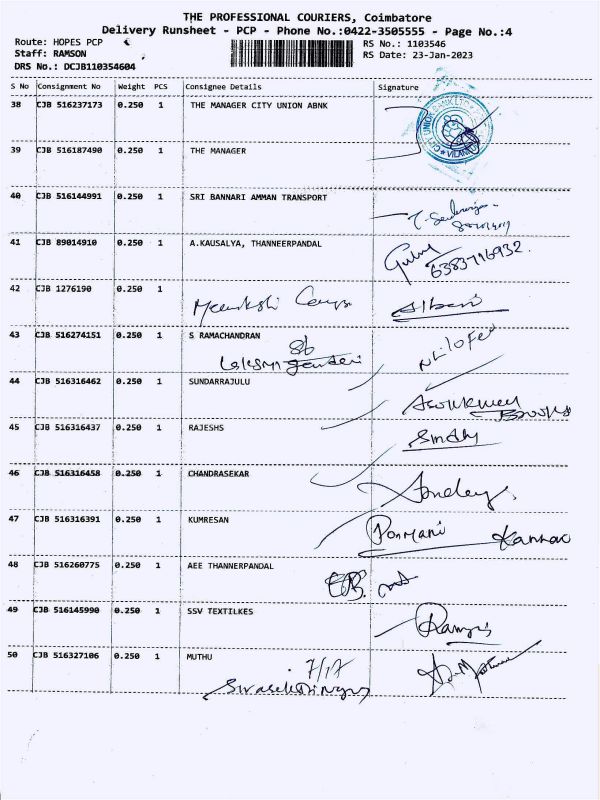 THE PROFESSIONAL COURIERS, Coimbatore
Delivery Runsheet - PCP - Phone No.:0422-3505555 - Page No.:4
Route: HOPES PCP
RS No.: 1103546
Staff: RAMSON
RS Date: 23-Jan-2023
DRS No.: DCJB110354604
S No Consignment No Weight PCS Consignee Details Signature
38 CJB 516237173 0.250 1 THE MANAGER CITY UNION ABNK
39 CJB 516187490 0.250 1 THE MANAGER
40 CJB 516144991 0.250 1 SRI BANNARI AMMAN TRANSPORT
41 CJB 89014910 0.250 1 A.KAUSALYA, THANNEERPANDAL
6383716932.
42 CJB 1276190 0.250 1
43 CJB 516274151 0.250 1 S RAMACHANDRAN
Nilofer
44 CJB 516316462 0.250 1 SUNDARRAJULU
45 CJB 516316437 0.250 1 RAJESHS
46 CJB 516316458 0.250 1 CHANDRASEKAR
47 CJB 516316391 0.250 1 KUMRESAN
Ponmani Kannan
48 CJB 516260775 0.250 1 AEE THANNERPANDAL
49 CJB 516145990 0.250 1 SSV TEXTILKES
50 CJB 516327106 0.250 1 MUTHU
7/17